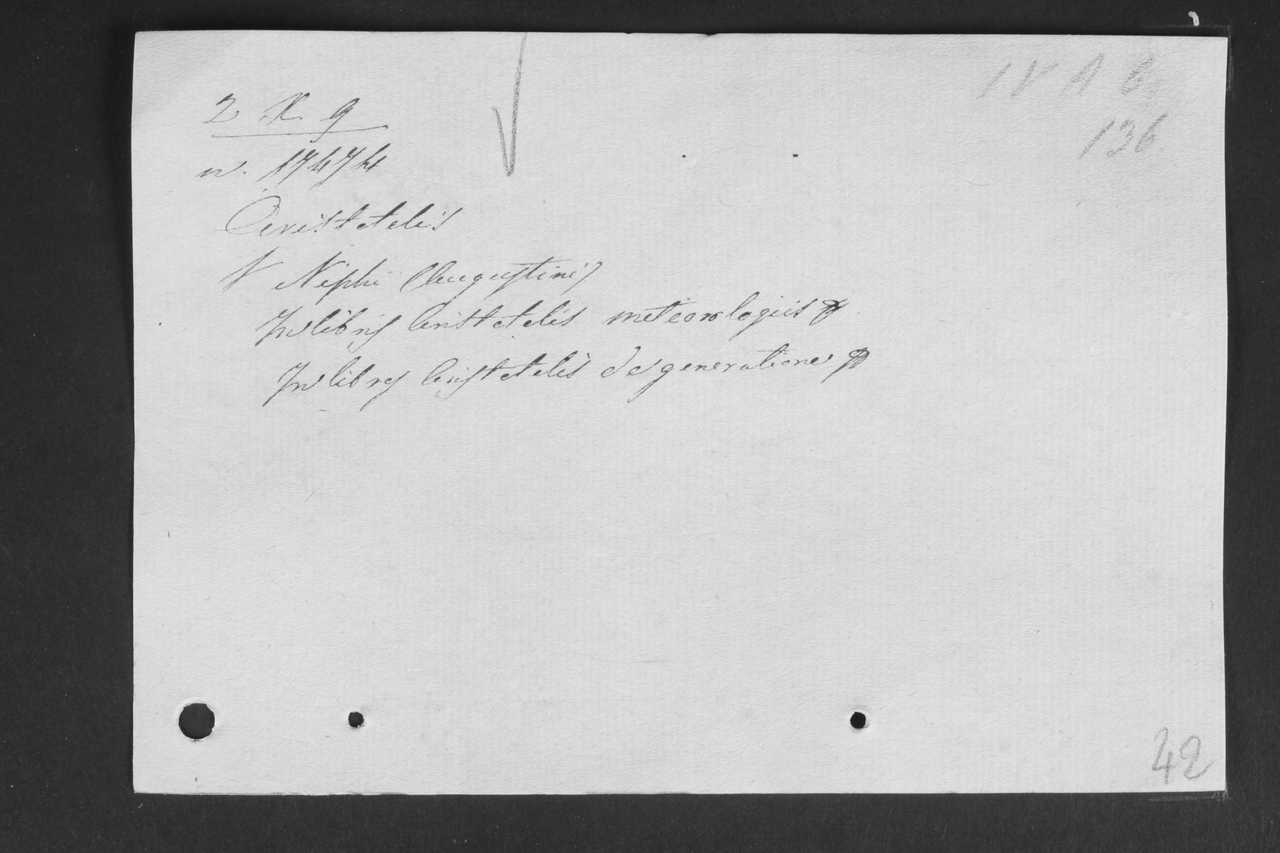 IV A 6
136
2 X 9
n. 17474
Aristotelis
V Niphi (Augustini)
In libris Aristotelis meteorologicis
In libros Aristotelis de generatione
42